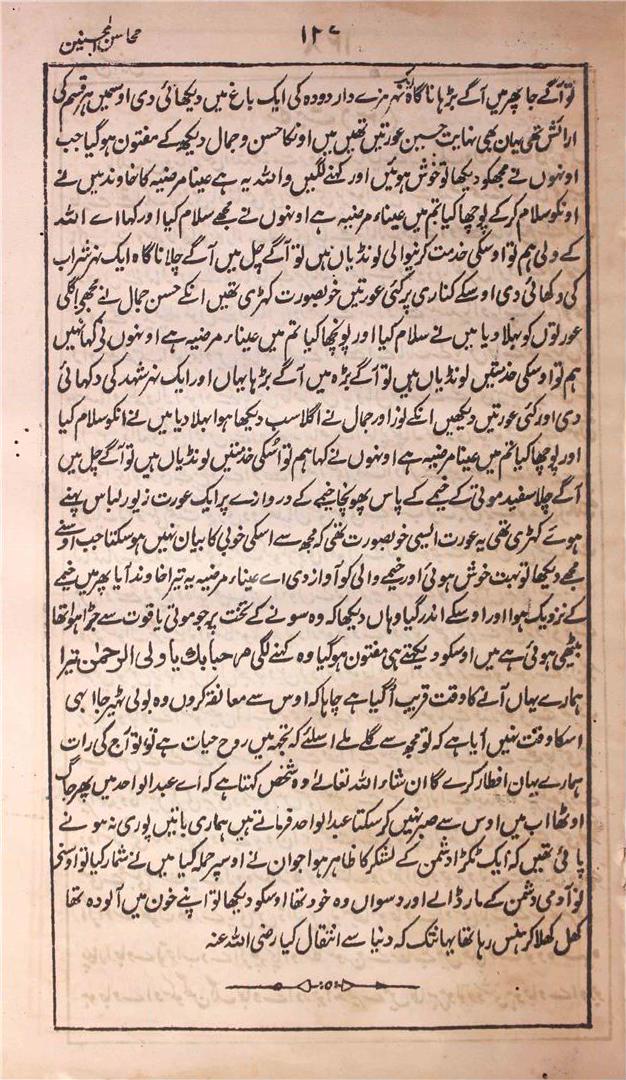 محاسن المحسنین
۱۲۶
تو آگے جا پھر میں آگے بڑھا ناگاہ ایک نہر مزے دار دودہ کی ایک باغ میں دیکھائی دی اوسمیں ہر قسم کی
ارائش تھی یہان بھی نہایت حسین عورتیں تھیں میں اونکا حسن و جمال دیکھ کے مفتون ہوگیا جب
اونہوں نے مجھکو دیکھا تو خوش ہوئیں اور کہنے لگیں واللہ یہ ہے عیناء مرضیہ کا خاوند میں نے
اونکو سلام کرکے پوچھا کیا تم میں عیناء مرضیہ ہے اونہوں نے مجھے سلام کیا اور کہا اے اللہ
کے ولی ہم تو اوسکی خدمت کرنیوالی لونڈیاں ہیں تو آگے چل میں آگے چلا ناگاہ ایک نہر شراب
کی دکھائی دی اوسکے کناری پر کئی عورتیں خوبصورت کھڑی تھیں انکے حسن جمال نے مجھے اگلی
عورتوں کو بہلا دیا میں نے سلام کیا اور پونچھا کیا تم میں عیناء مرضیہ ہے اونہوں نی کہا نہیں
ہم تو اوسکی خدمتیں لونڈیاں ہیں تو آگے بڑہ میں آگے بڑہا یہاں اور ایک نہر شہد کی دکھائی
دی اور کئی عورتیں دیکھیں انکے نور اور جمال نے اگلا سب دیکھا ہوا بہلا دیا میں نے انکو سلام کیا
اور پوچھا کیا تم میں عیناء مرضیہ ہے اونہوں نے کہا ہم تو اُسکی خدمتیں لونڈیاں ہیں تو آگے چل میں
آگے چلا سفید موتی کے خیمے کے پاس پہونچا خیمے کے دروازے پر ایک عورت زیور لباس پہنے
ہوئے کھڑی تھی یہ عورت ایسی خوبصورت تھی کہ مجھ سے اسکی خوبی کا بیان نہیں ہوسکتا جب اوسنے
مجھے دیکھا تو بہت خوش ہوئی اور خیمے والی کو آواز دی اے عیناء مرضیہ یہ تیرا خاوند آیا پھر میں خیمے
کے نزدیک ہوا اور اوسکے اندر گیا وہاں دیکھا کہ وہ سونے کے تخت پر جو موتی یاقوت سے جڑا ہوا تھا
بیٹھی ہوئی ہے میں اوسکو دیکھتے ہی مفتون ہوگیا وہ کہنے لگی مرحبا بك یا ولی الرحمٰن تیرا
ہمارے یہاں آنے کا وقت قریب آگیا ہے چاہا کہ اوس سے معانقہ کروں وہ بولی ٹہیر جا ابہی
اسکا وقت نہیں آیا ہے کہ تو مجھ سے گلے ملے اسلئے کہ تجھ میں روح حیات ہے تو تو آج کی رات
ہمارے یہان افطار کرے گا ان شاء اللہ تعالےٰ وہ شخص کہتا ہے کہ اے عبدالواحد میں پھر جاگ
اوٹھا اب میں اوس سے صبر نہیں کرسکتا عبدالواحد فرماتے ہیں ہماری باتیں پوری نہ ہونے
پائی تھیں کہ ایک ٹکڑا دشمن کے لشکر کا ظاہر ہوا جوان نے اوسپر حملہ کیا میں نے شمار کیا تو اوسنی
نو آدمی دشمن کے مار ڈالے اور دسواں وہ خود تھا اوسکو دیکھا تو اپنے خون میں آلودہ تھا
کھل کھلا کر ہنس رہا تھا یہانتک کہ دنیا سے انتقال کیا رضی اللہ عنہ